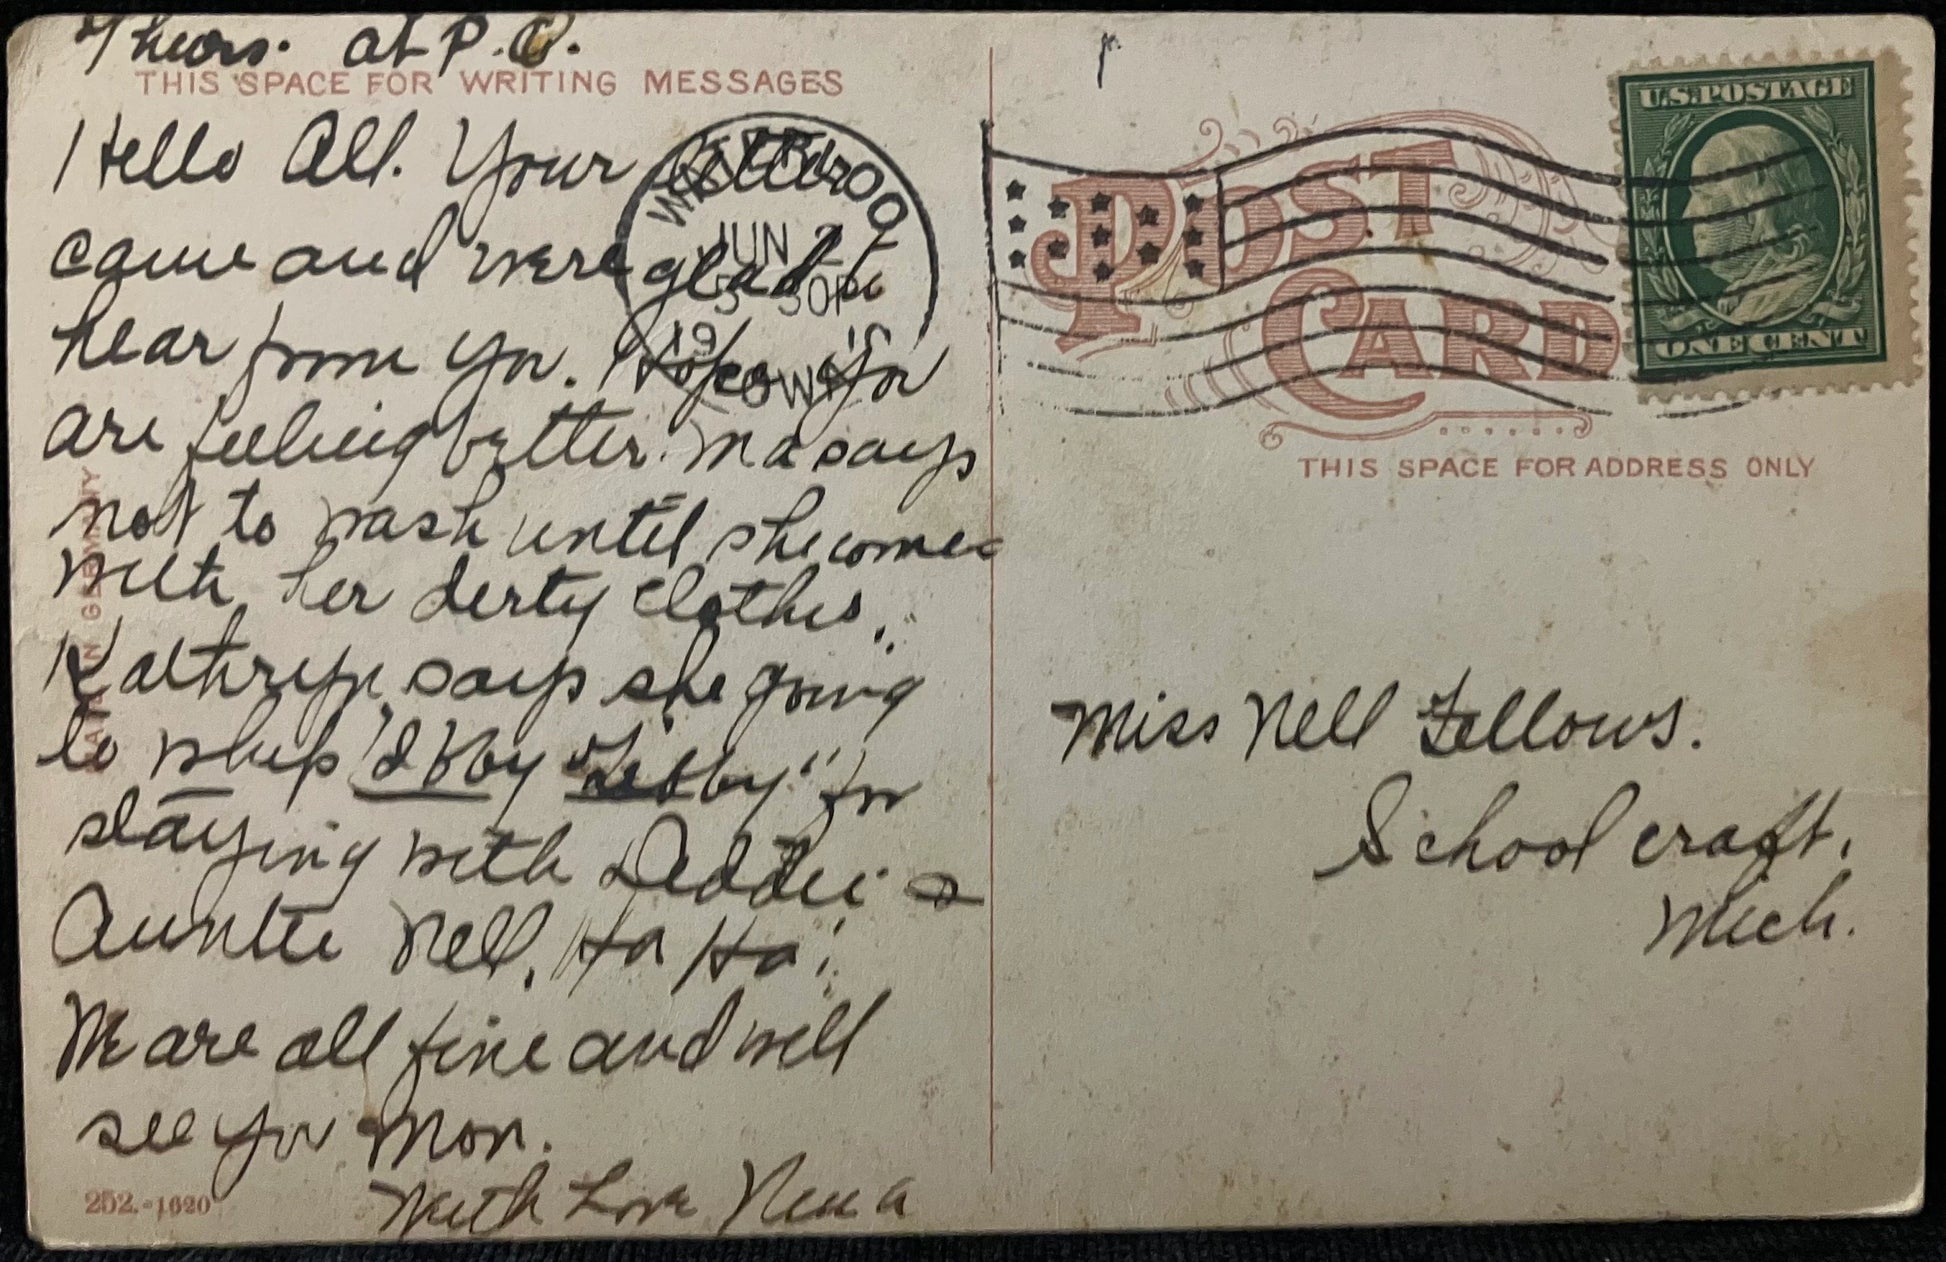 Thurs. at P.O.
THIS SPACE FOR WRITING MESSAGES
Hello All. Your letter
came and were glad to
hear from you. Hope you
are feeling better. Ma says
not to wash until she comes
with her derty clothes.
Kathryn says she going
to whip "Ibby Libby" for
staying with Deddie &
Auntie Nell. Ha Ha!
We are all fine and will
see you Mon.
With Love Nina
252.-1620
WATERLOO
JUN 2
5 30P
19
IOWA
POST
CARD
U.S. POSTAGE
ONE CENT
THIS SPACE FOR ADDRESS ONLY
Miss Nell Fellows.
Schoolcraft.
Mich.
GERMANY